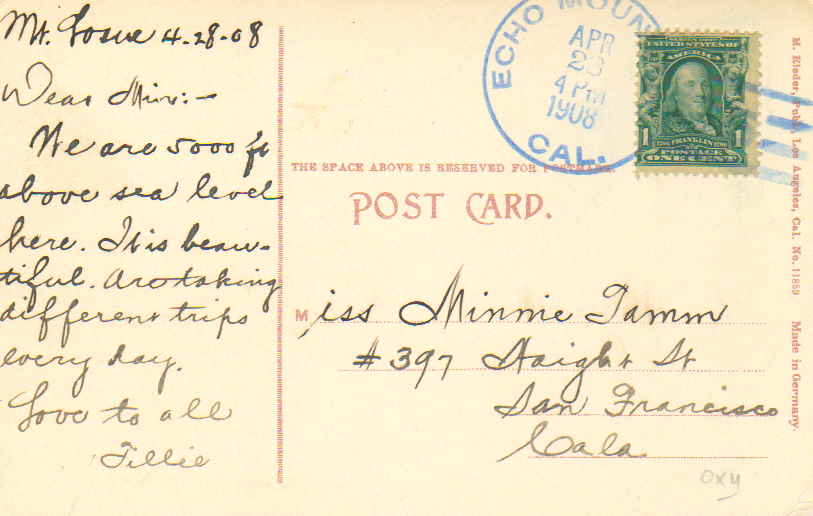 Mt. Lowe 4-28-08
Dear Min:-
We are 5000 ft
above sea level
here. It is beau-
tiful. Are taking
different trips
every day.
Love to all
Tillie
ECHO MOUN
APR
28
4 PM
1908
CAL.
UNITED STATES OF
AMERICA
1 FRANKLIN 1
POSTAGE
ONE CENT
THE SPACE ABOVE IS RESERVED FOR POSTMARK.
POST CARD.
Miss Minnie Tamm
#397 Haight St
San Francisco
Cala.
OXY
M. Rieder, Publ., Los Angeles, Cal. No. 11859 Made in Germany.